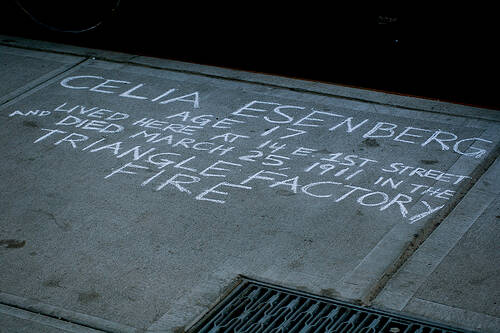 CELIA ESENBERG
AGE 17
LIVED HERE AT 14 E 1ST STREET
AND DIED MARCH 25, 1911 IN THE
TRIANGLE FACTORY
FIRE